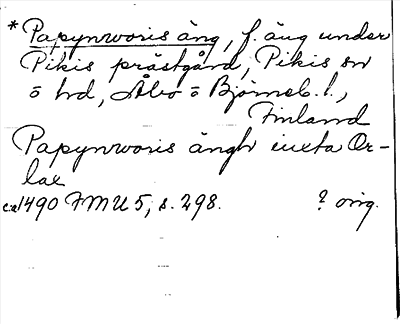 * Papynworis äng, f. äng under
Pikis prästgård, Pikis sn
ö hd, Åbo ö Björneb. l.,
Finland
Papynworis ängh iuxta Or-
lax
ca 1490 FMU 5, s. 298. ? orig.